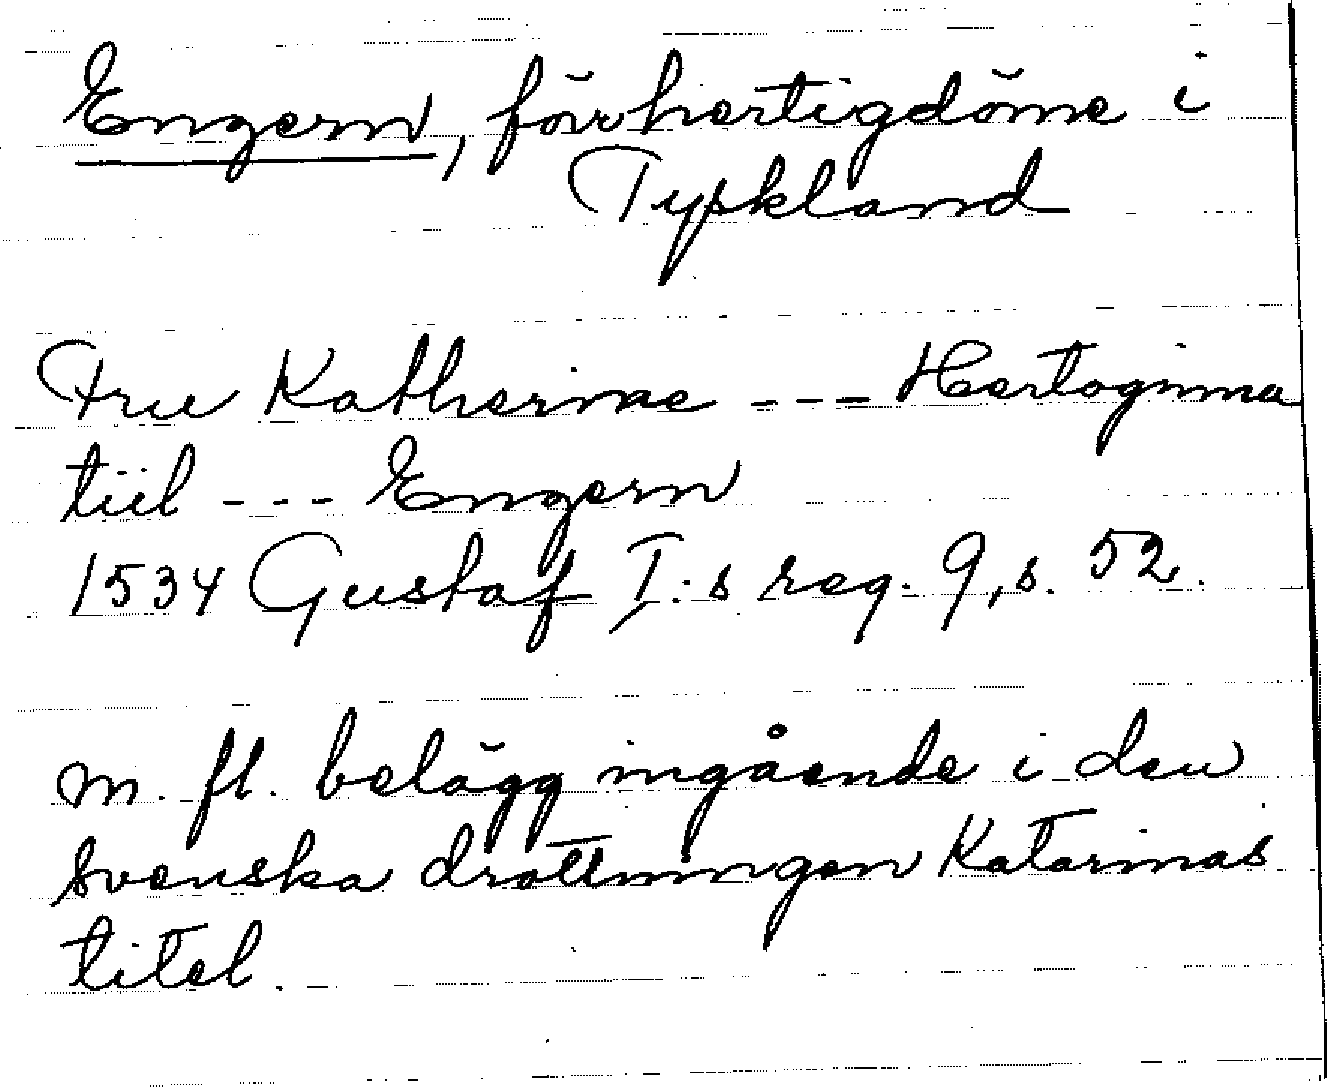 Engern, förr hertigdöme i
Tyskland
Frue Katherinae --- Hertoginna
tiil --- Engern
1534 Gustaf I:s reg. 9, s. 52.
m. fl. belägg ingående i den
svenska drottningen Katarinas
titel.